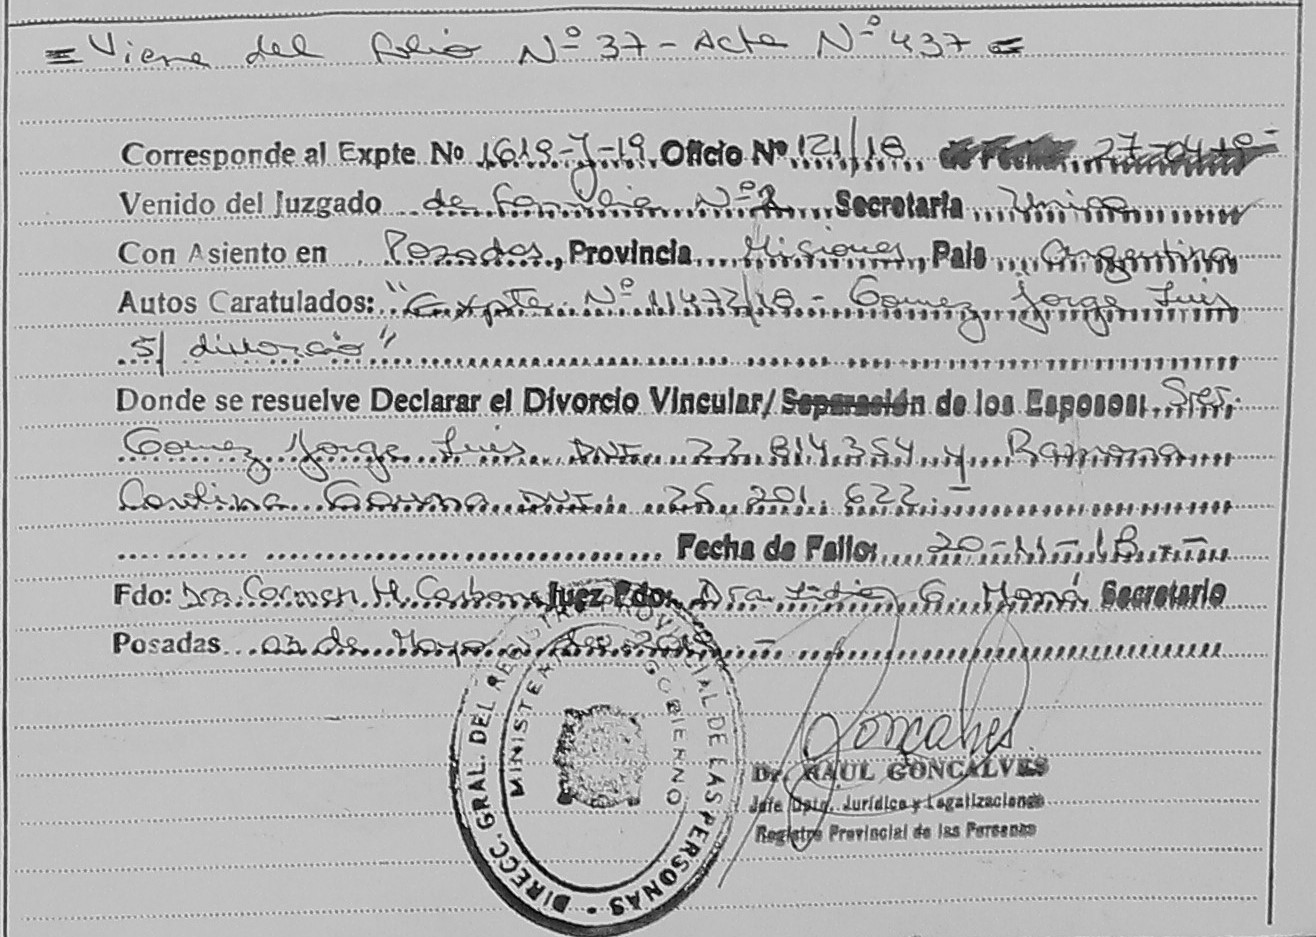 = Viene del folio Nº 37 - Acta Nº 437 =
Corresponde al Expte No 1618-J-19 Oficio Nº 121/18 de Fecha 27-04-18-
Venido del Juzgado de Familia Nº 2 Secretaria Unica
Con Asiento en Posadas, Provincia Misiones, Pais Argentina
Autos Caratulados: "Expte. Nº 11472/18 - Gomez Jorge Luis
S/ divorcio"
Donde se resuelve Declarar el Divorcio Vincular/ Separación de los Esposos: Sres.
Gomez Jorge Luis DNI. 22.814.354 y Ramona
Carolina DNI. 25.201.622.-
Fecha de Fallo: 20-11-18.-
Fdo: Dra. Carmen M. Carbone Juez Fdo: Dra. Lidia G. Secretario
Posadas 03 de Mayo de
DIRECC. GRAL. DEL REGISTRO PROVINCIAL DE LAS PERSONAS -
MINISTERIO GOBIERNO
Goncalves
Dr. RAUL GONCALVES
Jefe Dpto. Jurídico y Legalizaciones
Registro Provincial de las Personas